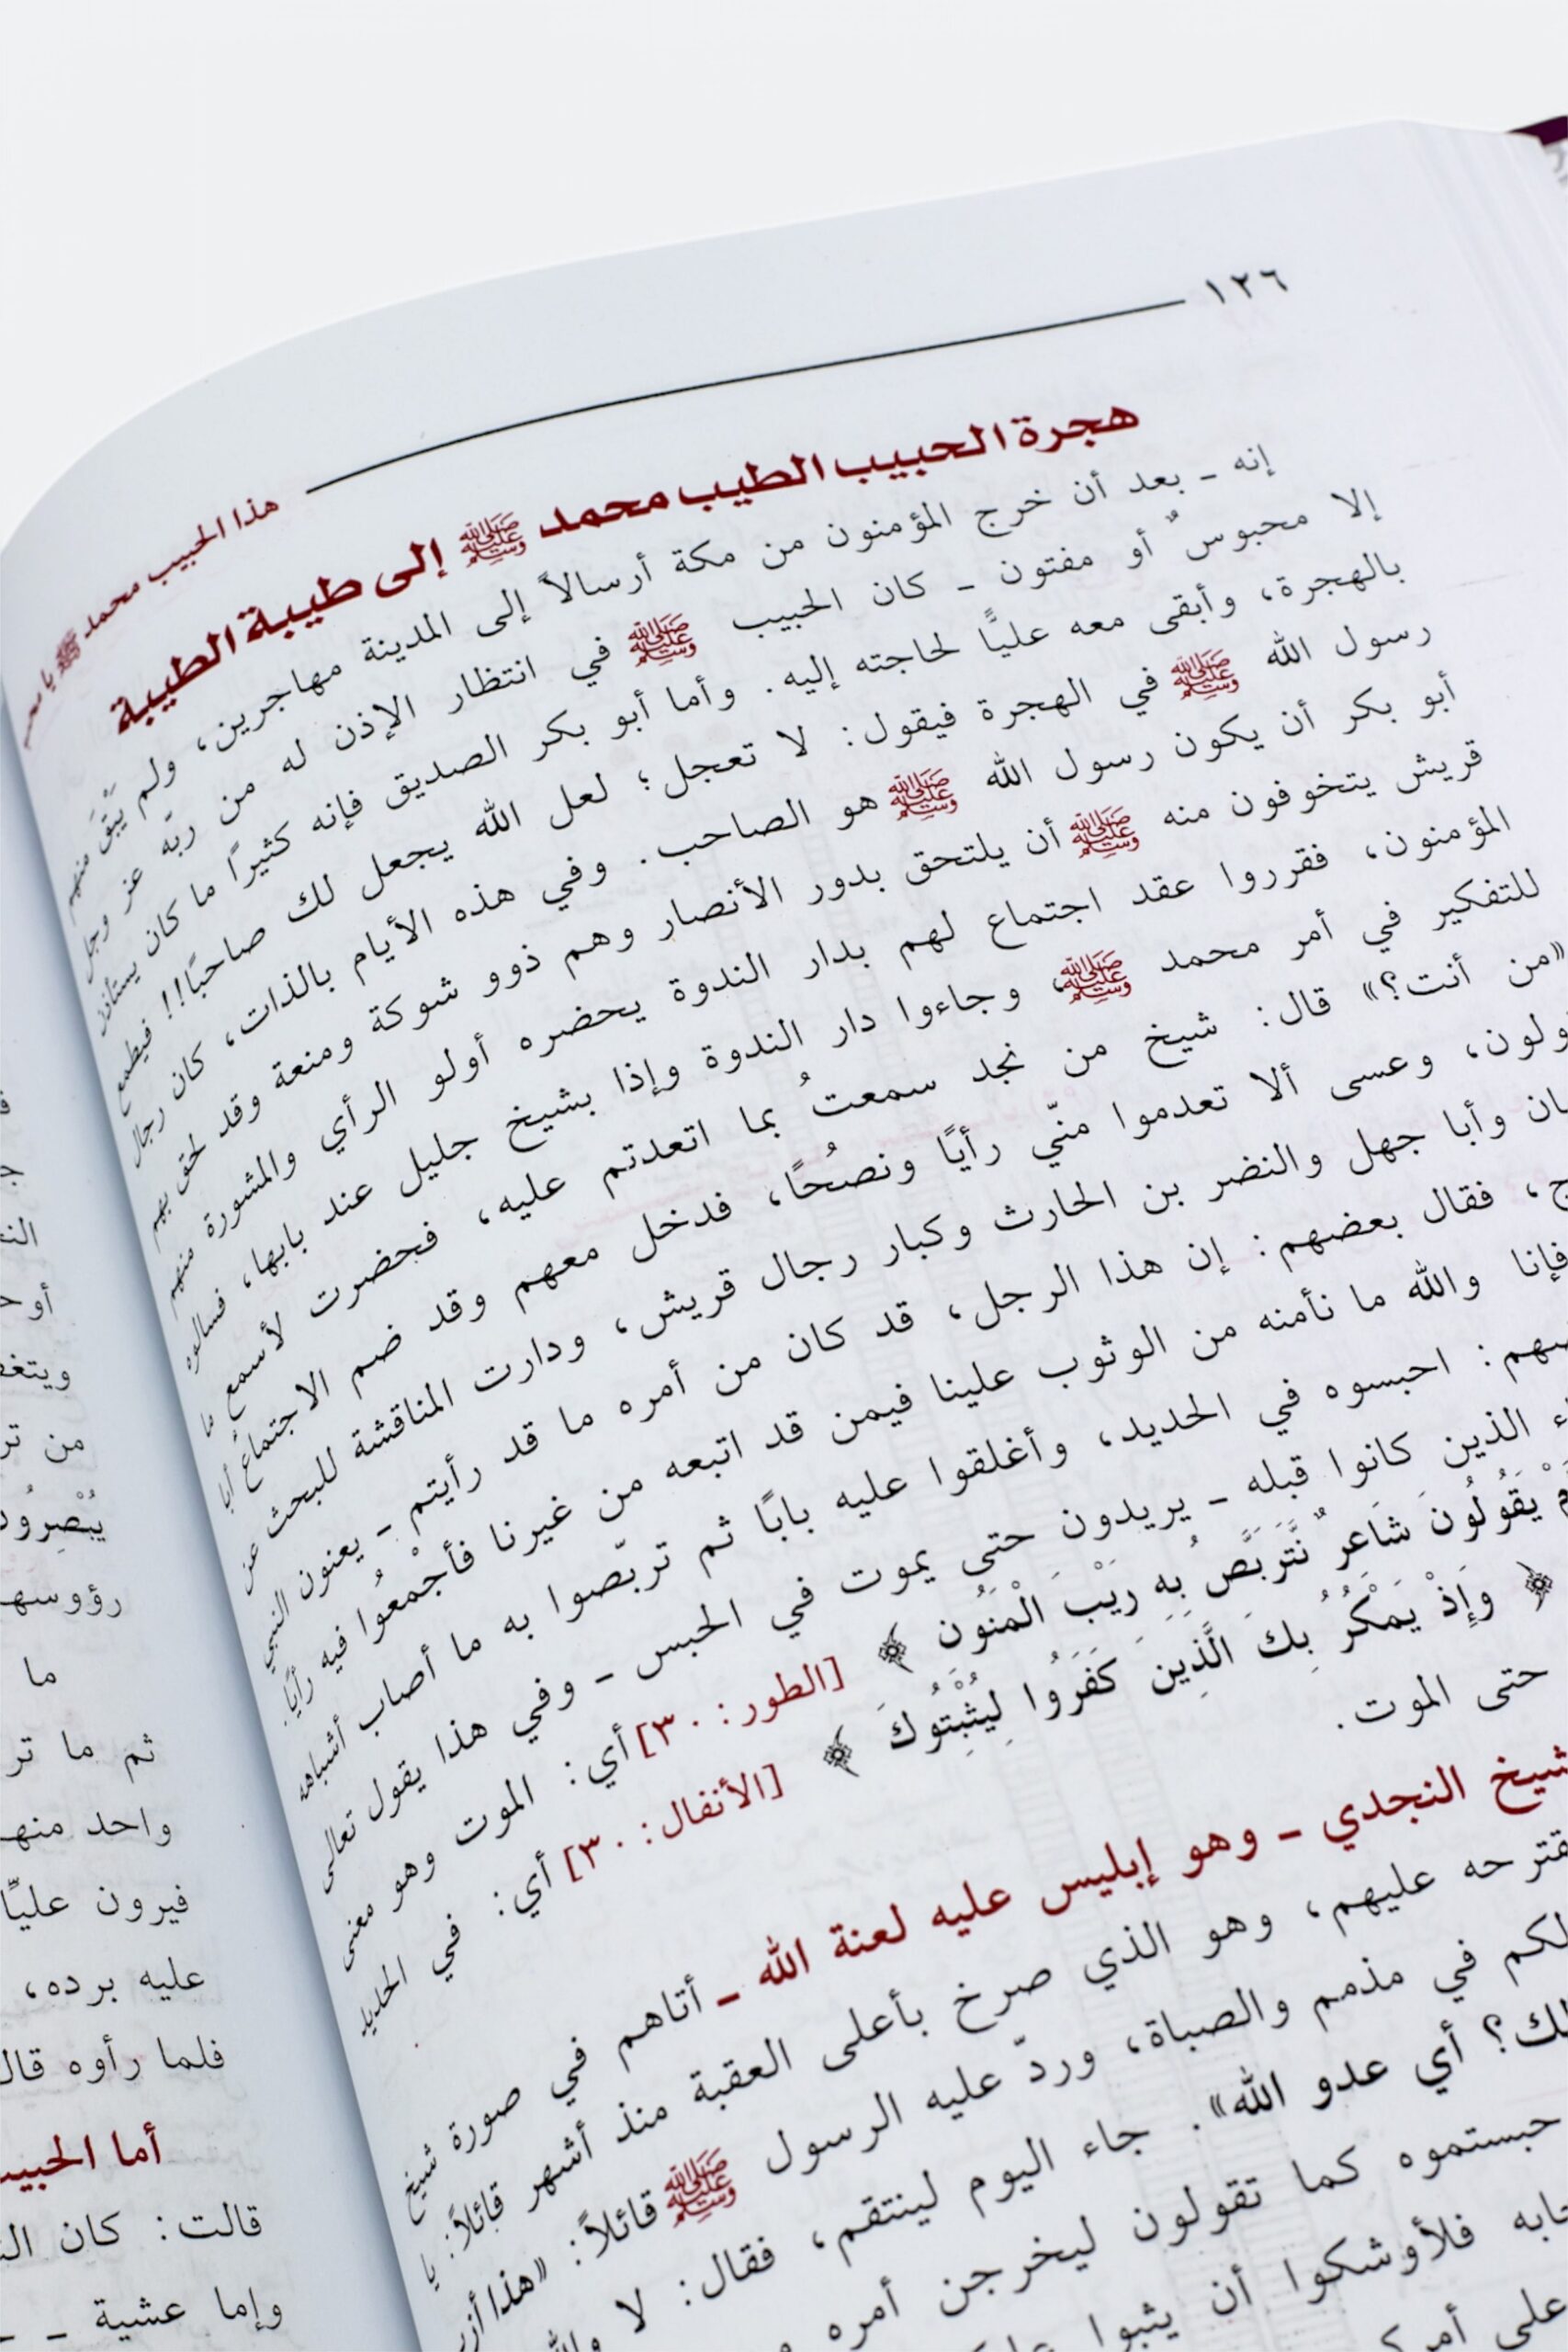 ١٢٦
هذا الحبيب محمد ﷺ يا محب
هجرة الحبيب الطيب محمد ﷺ إلى طيبة الطيبة
إنه ـ بعد أن خرج المؤمنون من مكة أرسالاً إلى المدينة مهاجرين، ولم يَبْقَ منهم
إلا محبوسٌ أو مفتون ـ كان الحبيب ﷺ في انتظار الإذن له من ربّه عز وجل
بالهجرة، وأبقى معه عليًّا لحاجته إليه. وأما أبو بكر الصديق فإنه كثيرًا ما كان يستأذن
رسول الله ﷺ في الهجرة فيقول: لا تعجل؛ لعل الله يجعل لك صاحبًا!! فيطمع
أبو بكر أن يكون رسول الله ﷺ هو الصاحب. وفي هذه الأيام بالذات، كان رجال
قريش يتخوفون منه ﷺ أن يلتحق بدور الأنصار وهم ذوو شوكة ومنعة وقد لحق بهم
المؤمنون، فقرروا عقد اجتماع لهم بدار الندوة يحضره أولو الرأي والمشورة منهم
للتفكير في أمر محمد ﷺ، وجاءوا دار الندوة وإذا بشيخ جليل عند بابها، فسألوه
«من أنت؟» قال: شيخ من نجد سمعتُ بما اتعدتم عليه، فحضرت لأسمع ما
ولون، وعسى ألا تعدموا منّي رأيًا ونصُحًا، فدخل معهم وقد ضم الاجتماعُ أبا
ان وأبا جهل والنضر بن الحارث وكبار رجال قريش، ودارت المناقشة للبحث عن
ج، فقال بعضهم: إن هذا الرجل، قد كان من أمره ما قد رأيتم ـ يعنون النبي
فإنا والله ما نأمنه من الوثوب علينا فيمن قد اتبعه من غيرنا فأجْمعُوا فيه رأيًا.
ضهم: احبسوه في الحديد، وأغلقوا عليه بابًا ثم تربّصوا به ما أصاب أشباهه
اء الذين كانوا قبله ـ يريدون حتى يموت في الحبس ـ وفي هذا يقول تعالى
مْ يَقُولُونَ شَاعِرٌ نَّتَرَبَّصُ بِهِ رَيْبَ الْمَنُونِ ﴾ [الطور: ٣٠] أي: الموت وهو معنى
﴿ وَإِذْ يَمْكُرُ بِكَ الَّذِينَ كَفَرُوا لِيُثْبِتُوكَ ﴾ [الأنفال: ٣٠] أي: في الحديد
حتى الموت.
شيخ النجدي ـ وهو إبليس عليه لعنة الله ـ أتاهم في صورة شيخ
قترحه عليهم، وهو الذي صرخ بأعلى العقبة منذ أشهر قائلاً: يا
لكم في مذمم والصباة، وردّ عليه الرسول ﷺ قائلاً: «هذا أزب
لك؟ أي عدو الله». جاء اليوم لينتقم، فقال: لا والله
حبستموه كما تقولون ليخرجن أمره
حابه فلأوشكوا أن يثبوا
على أمركم
الند
أو
ويتغ
من تر
يُبْصِرُو
رؤوسه
ما
ثم ما تر
واحد منه
فيرون عليًّا
عليه برده،
فلما رأوه قال
أما الحبيب
قالت: كان ال
وإما عشية ـ